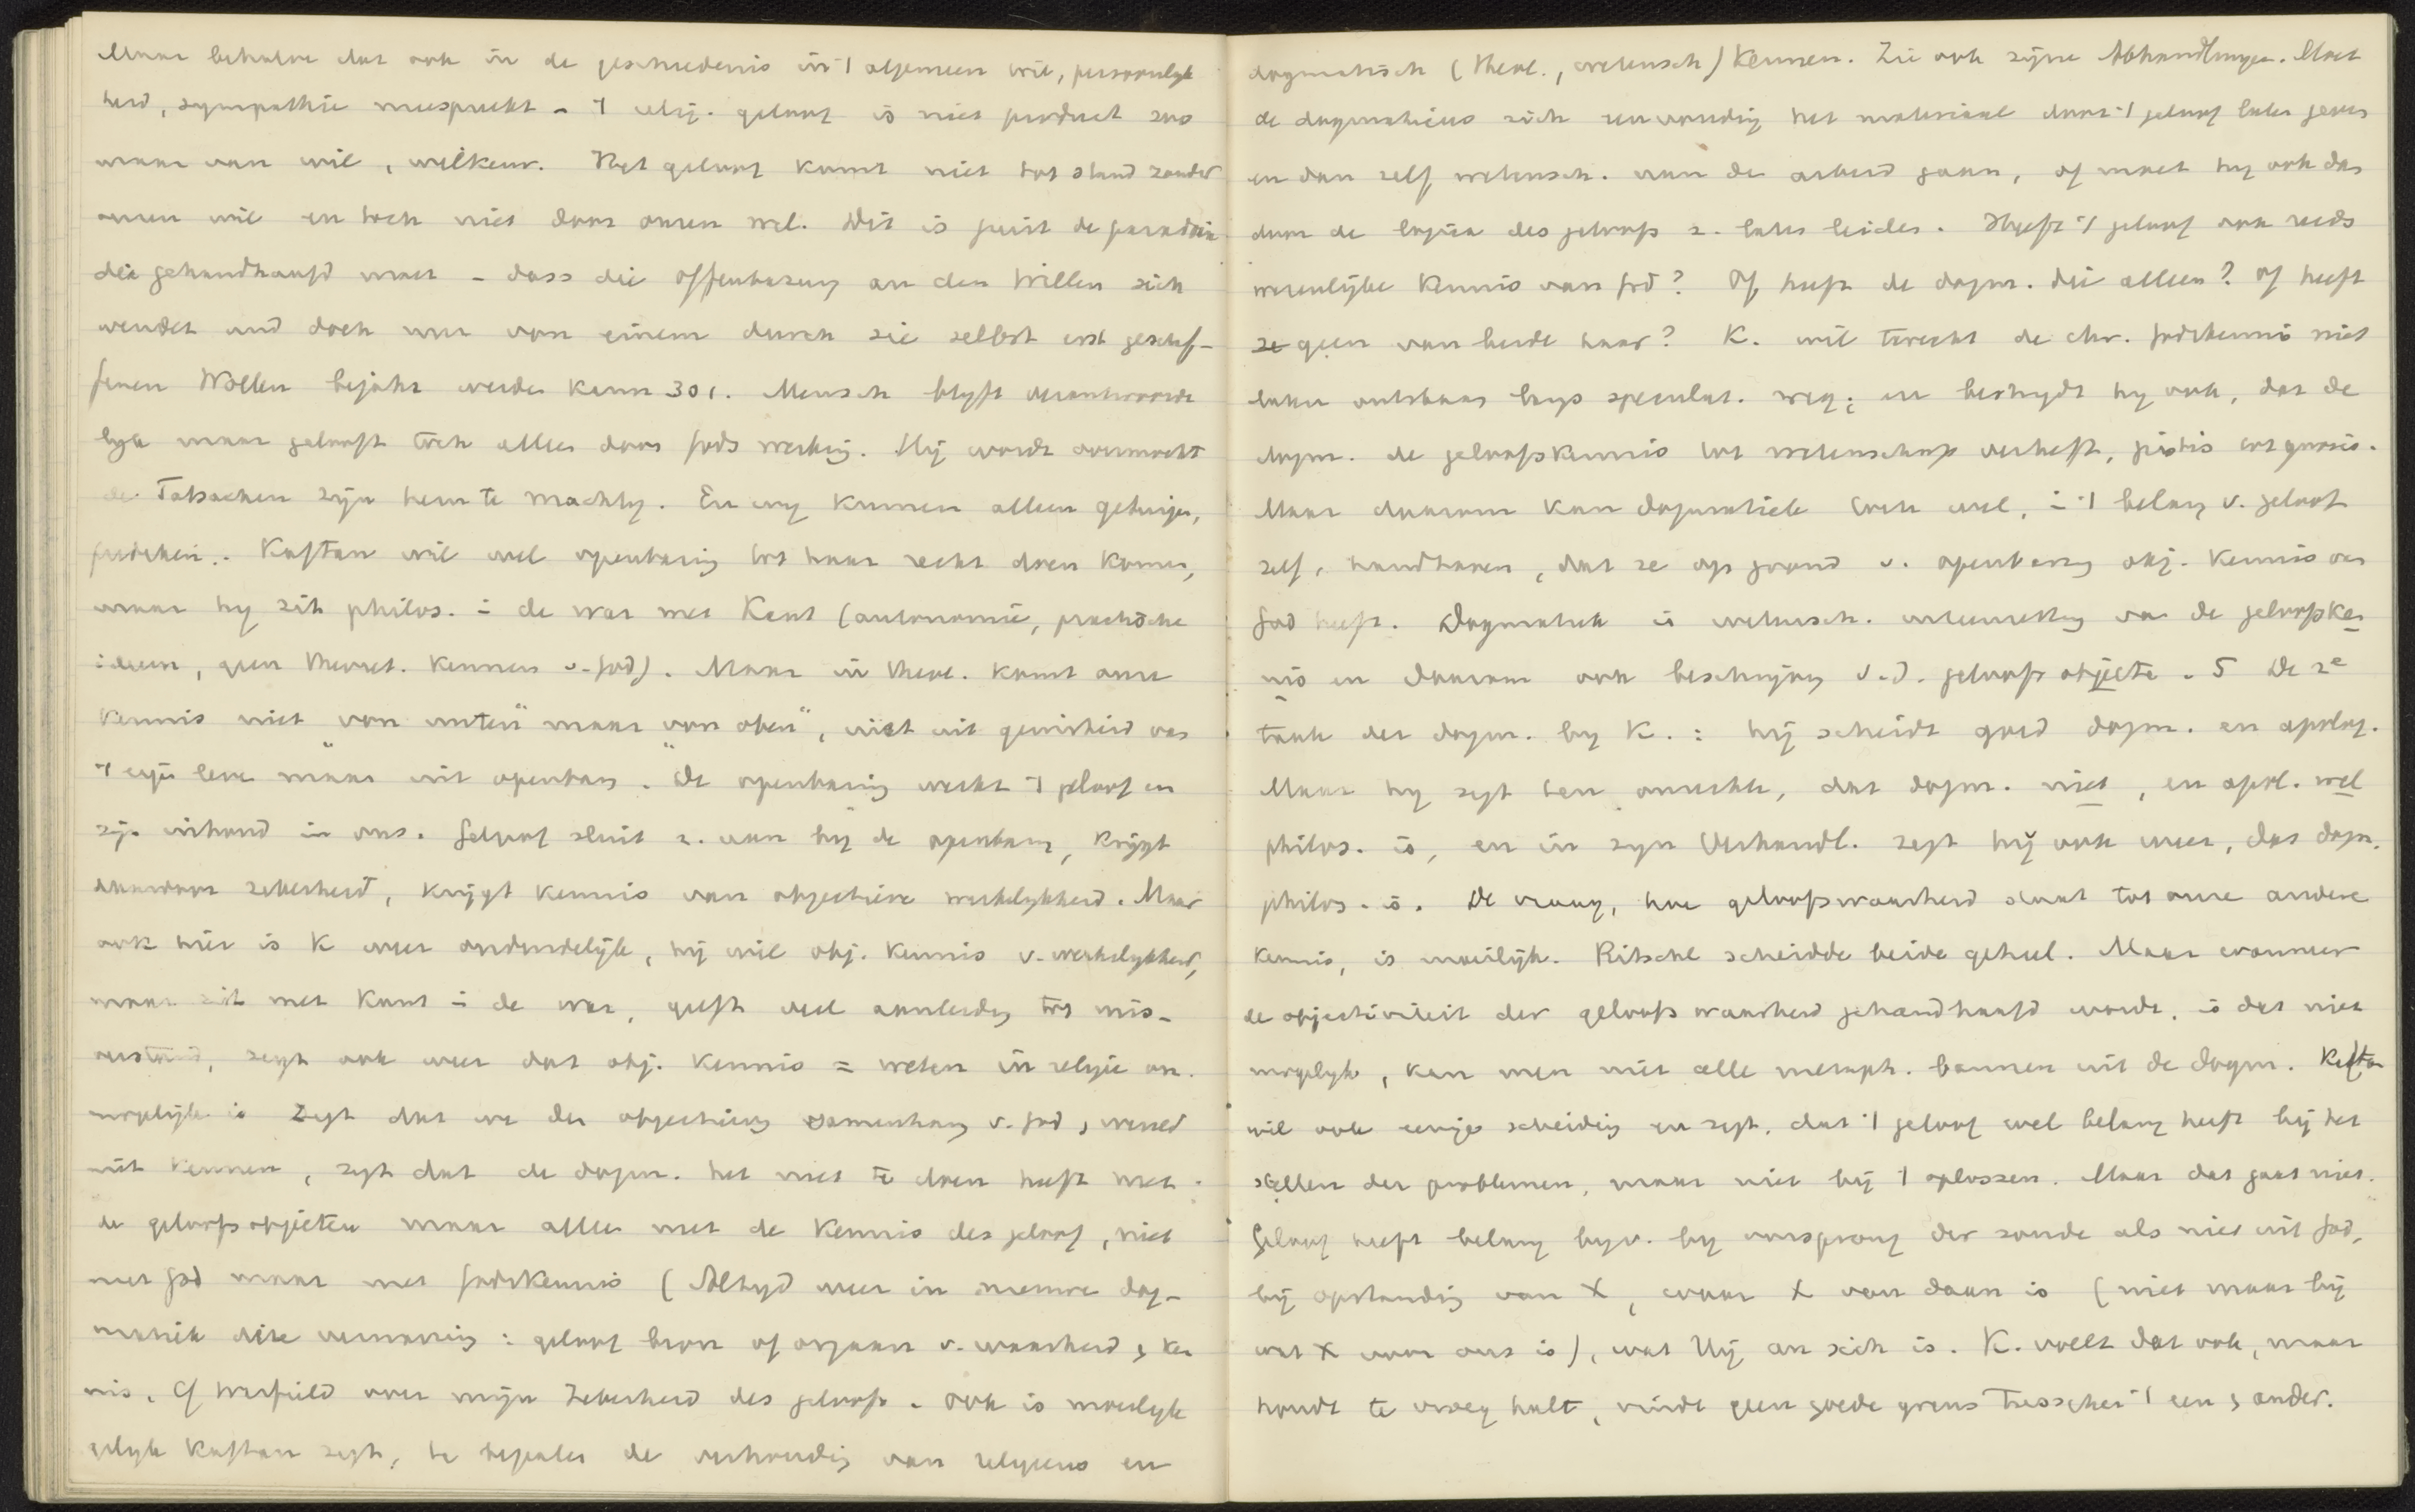 Maar behalve dat ook in de geschiedenis in 't algemeen wil, persoonlyk
heid, sympathie meespreekt - 't relig. geloof is niet product zoo
maar van wil, wilkeur. Het geloof komt niet tot stand zonder
onzen wil en toch niet door onzen wil. Dit is juist de paradoxie
die gehandhaafd moet - dass die Offenbarung an den Willen sich
wendet und doch nur von einem durch sie selbst erst geschaf-
fenen Wollen bejaht werden kann 301. Mensch blyft verantwoorde
lyk maar gelooft toch alleen door Gods werking. Hij wordt overmocht
de Tatsachen zyn hem te machtig. En wy kunnen alleen getuigen,
prediken. Kaftan wil wel openbaring tot haar recht doen komen,
maar hy zit philos. in de war met Kant (autonomie, practische
ideeen, geen theoret. kennen v. God). Maar in theol. komt onze
kennis niet "von unten" maar "von oben", niet uit gewisheid van
't eigen leven maar uit openbaring. De openbaring werkt 't geloof en
zyn inhoud in ons. Geloof sluit z. aan by de openbaring, krygt
daardoor zekerheid, krygt kennis van objectieve werkelykheid. Maar
ook hier is K weer onduidelijk, hij wil obj. kennis v. werkelykheid,
maar zit met Kant in de war, geeft veel aanleiding tot mis-
verstand, zegt ook weer dat obj. kennis = weten in religie on-
mogelijk is zegt dat we den objectieven samenhang v. God, wereld
niet kennen, zegt dat de dogm. het niet te doen heeft met
de geloofsobjecten maar alleen met de kennis des geloofs, niet
met God maar met Godskennis (Altyd weer in nieuwe dog-
matiek deze verwarring: geloof bron of orgaan v. waarheid, ken
nis. Cf Warfield over mijn Zekerheid des geloofs. Ook is moeilyk
gelyk Kaftan zegt, te bepalen de verhouding van religieus en
dogmatisch (theol., wetensch) kennen. Zie ook zijne Abhandlungen. Moet
de dogmaticus zich eenvoudig het materiaal door 't geloof laten geven
en dan zelf wetensch. aan den arbeid gaan, of moet hy ook dan
door de logica des geloofs z. laten leiden. Heeft 't geloof ook reeds
wezenlijke kennis van God? Of heeft de dogm. die alleen? Of heeft
geen van beide haar? K. wil terecht de chr. Godskennis niet
laten ontstaan langs speculat. weg; en bestrydt hy ook, dat de
dogm. de geloofskennis tot wetenschap verheft, pistis tot gnosis.
Maar daarom kan dogmatiek toch wel, in 't belang v. geloof
zelf, handhaven, dat ze op grond v. openbaring obj. kennis van
God heeft. Dogmatiek is wetensch. uiteenzetting van de geloofsken
nis en daarom ook beschryving v. d. geloofsobjecten. 5 De 2e
taak der dogm. by K.: hij scheidt goed dogm. en apolog.
Maar hy zegt ten onrechte, dat dogm. niet, en apol. wel
philos. is, en in zyn Verhandl. zegt hij ook weer, dat dogm.
philos. is. De vraag, hoe geloofswaarheid staat tot onze andere
kennis, is moeilijk. Ritschl scheidde beide geheel. Maar wanneer
de objectiviteit der geloofswaarheid gehandhaafd wordt, is dat niet
mogelyk, kan men niet alle metaph. bannen uit de dogm. Kaftan
wil ook eenige scheiding en zegt, dat 't geloof wel belang heeft bij het
stellen der problemen, maar niet bij 't oplossen. Maar dat gaat niet.
Geloof heeft belang byv. by oorsprong der zonde als niet uit God,
bij opstanding van X, waar X van daan is (niet maar bij
wat X voor ons is), wat Hij an sich is. K. voelt dat ook, maar
houdt te vroeg halt, vindt geen goede grens tusschen 't een & ander.